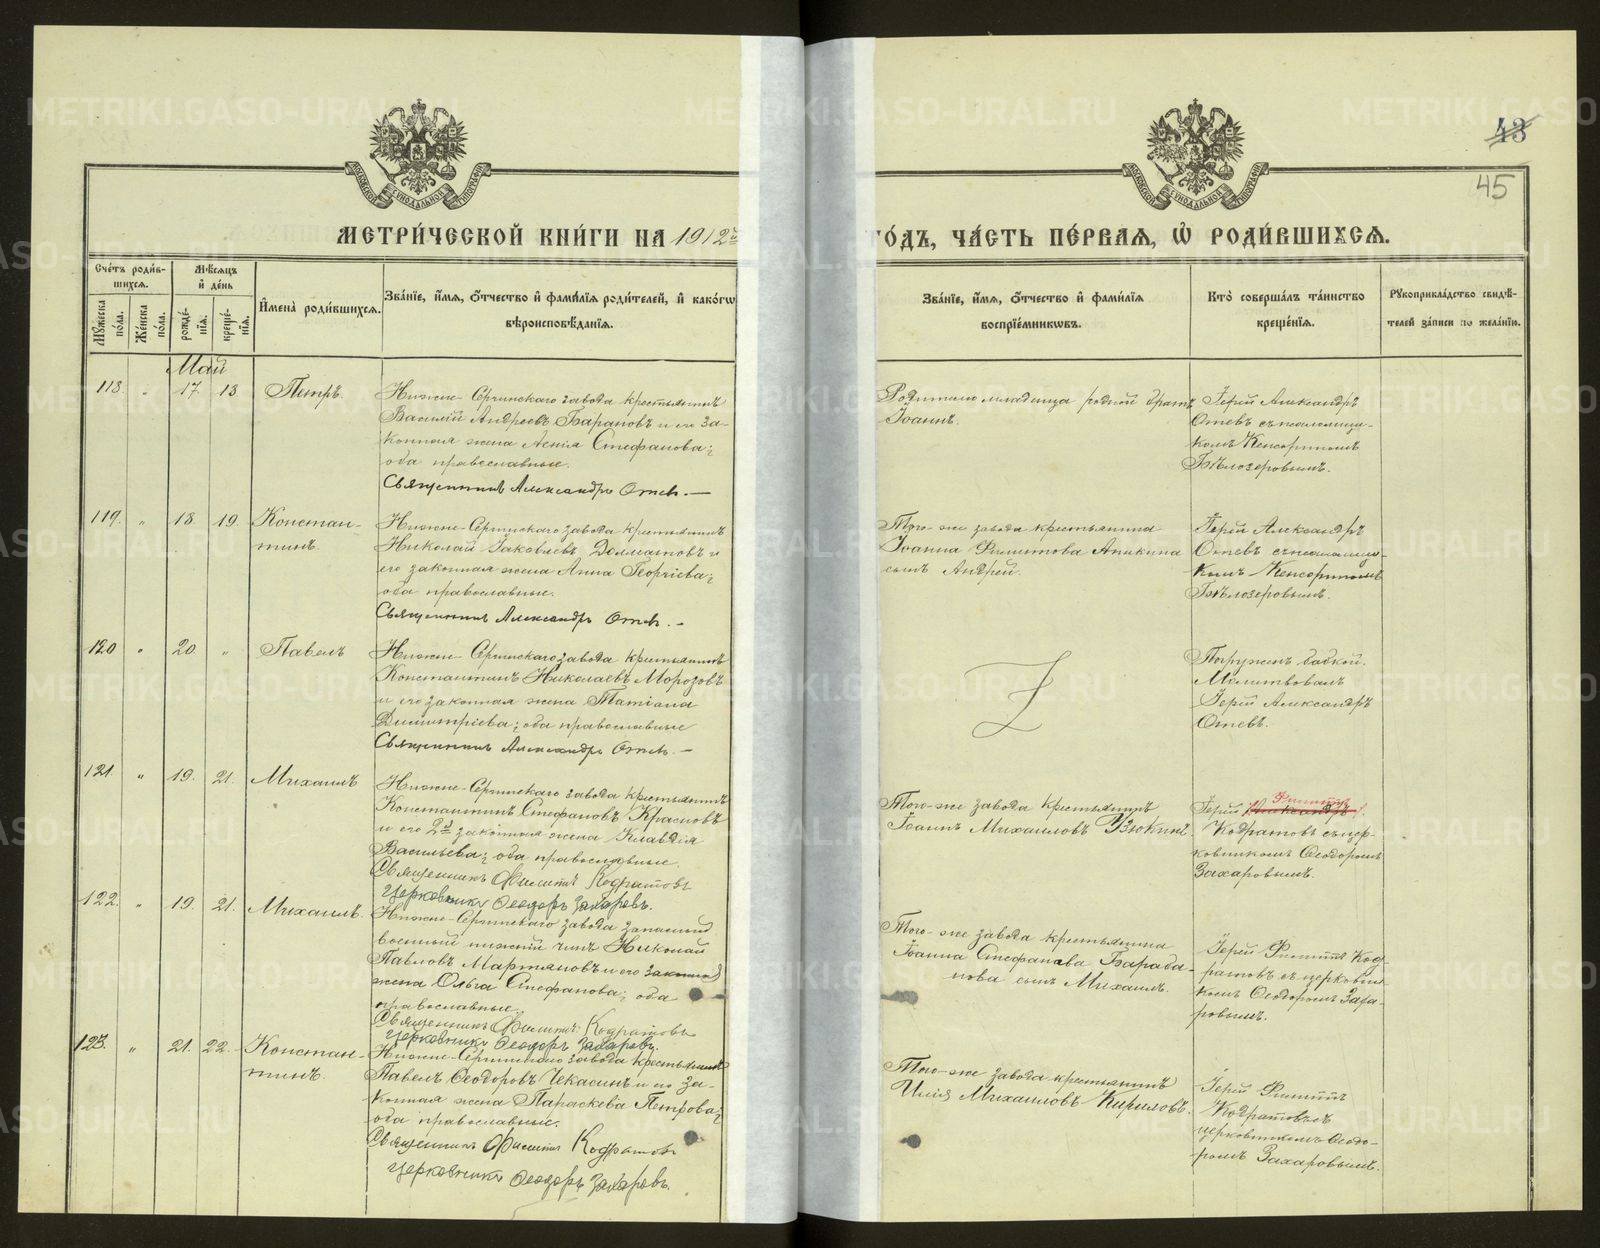 43
45
МЕТРИ́ЧЕСКОЙ КНИ́ГИ НА 1912й
ГО́ДЪ, ЧА́СТЬ ПЕ́РВАЯ, Ѡ РОДИ́ВШИХСЯ.
Сче́тъ роди́в-
шихся.
Му́жеска по́ла.
Же́нска по́ла.
Мѣ́сяцъ
и҆ де́нь
рожде́-
нїя.
креще́-
нїя.
И҆мена̀ роди́вшихся.
Зва́нїе, и҆́мя, ѻ҆́тчество и҆ фами́лїя роди́телей, и҆ како́гѡ
вѣроисповѣ́данїя.
Зва́нїе, и҆́мя, ѻ҆́тчество и҆ фами́лїя
воспрїе́мникѡвъ.
Кто̀ соверша́лъ та́инство
креще́нїя.
Рꙋкоприкла́дство свидѣ́-
телей за́писи по жела́нїю.
Май
118. " 17. 18. Петръ.
Нижне-Сергинскаго завода крестьянинъ
Василій Андреевъ Барановъ и его за-
конная жена Ксенія Стефанова;
оба православные.
Священникъ Александръ Отевъ.
Родителю младенца родной братъ
Іоаннъ.
Іерей Александръ
Отевъ съ псаломщи-
комъ Кенсориномъ
Бѣлозеровымъ.
119. " 18. 19. Констан-
тинъ.
Нижне-Сергинскаго завода крестьянинъ
Николай Іаковлевъ Долматовъ и
его законная жена Анна Георгіева;
оба православные.
Священникъ Александръ Отевъ.
Того-же завода крестьянина
Іоанна Филиппова Аникина
сынъ Андрей.
Іерей Александръ
Отевъ съ псаломщи-
комъ Кенсориномъ
Бѣлозеровымъ.
120 " 20. " Павелъ
Нижне-Сергинскаго завода крестьянинъ
Константинъ Николаевъ Морозовъ
и его законная жена Татіана
Димитріева; оба православные
Священникъ Александръ Отевъ.
Погруженъ бабкой.
Молитвовалъ
Іерей Александръ
Отевъ.
121. " 19. 21. Михаилъ
Нижне-Сергинскаго завода крестьянинъ
Константинъ Стефановъ Красновъ
и его 2я законная жена Клавдія
Васильева; оба православные.
Священникъ Филиппъ Кодратовъ
Церковникъ Ѳеодоръ Захаровъ.
Того-же завода крестьянинъ
Іоаннъ Михаиловъ Узюкинъ.
Филиппъ
Іерей Александръ
Кодратовъ съ цер-
ковникомъ Ѳеодоромъ
Захаровымъ.
122. " 19. 21. Михаилъ.
Нижне-Сергинскаго завода запасный
военный нижній чинъ Николай
Павловъ Мартяновъ и его законная
жена Ольга Стефанова; оба
православные.
Священникъ Филиппъ Кодратовъ
Церковникъ Ѳеодоръ Захаровъ.
Того-же завода крестьянина
Іоанна Стефанова Бараба-
нова сынъ Михаилъ.
Іерей Филиппъ Код-
ратовъ съ церковни-
комъ Ѳеодоромъ Заха-
ровымъ.
123. " 21. 22. Констан-
тинъ.
Нижне-Сергинскаго завода крестьянинъ
Павелъ Ѳеодоровъ Чекасинъ и его за-
конная жена Параскева Петрова;
оба православные.
Священникъ Филиппъ Кодратовъ
Церковникъ Ѳеодоръ Захаровъ.
Того-же завода крестьянинъ
Илія Михаиловъ Кириловъ.
Іерей Филиппъ
Кодратовъ съ
церковникомъ Ѳеодо-
ромъ Захаровымъ.
METRIKI.GASO-URAL.RU